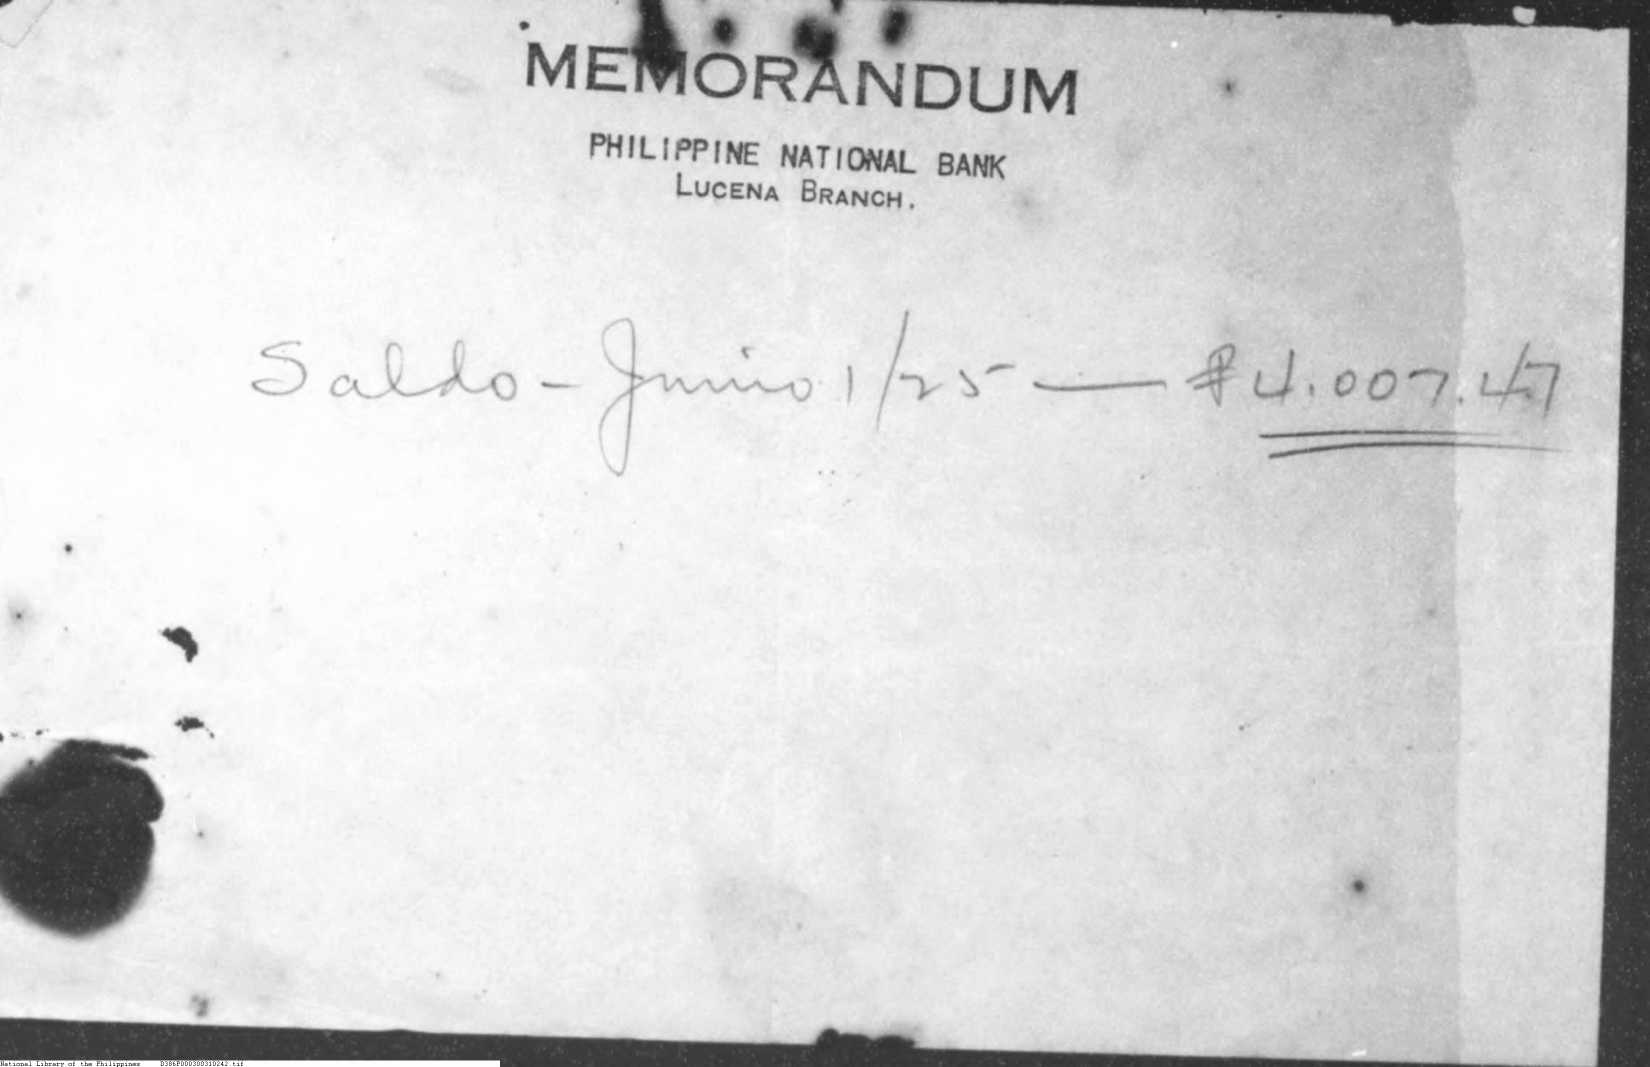 MEMORANDUM
PHILIPPINE NATIONAL BANK
LUCENA BRANCH.
Saldo - Junio 1/25 — ₱4.007.47
National Library of the Philippines D386P000300310242.tif